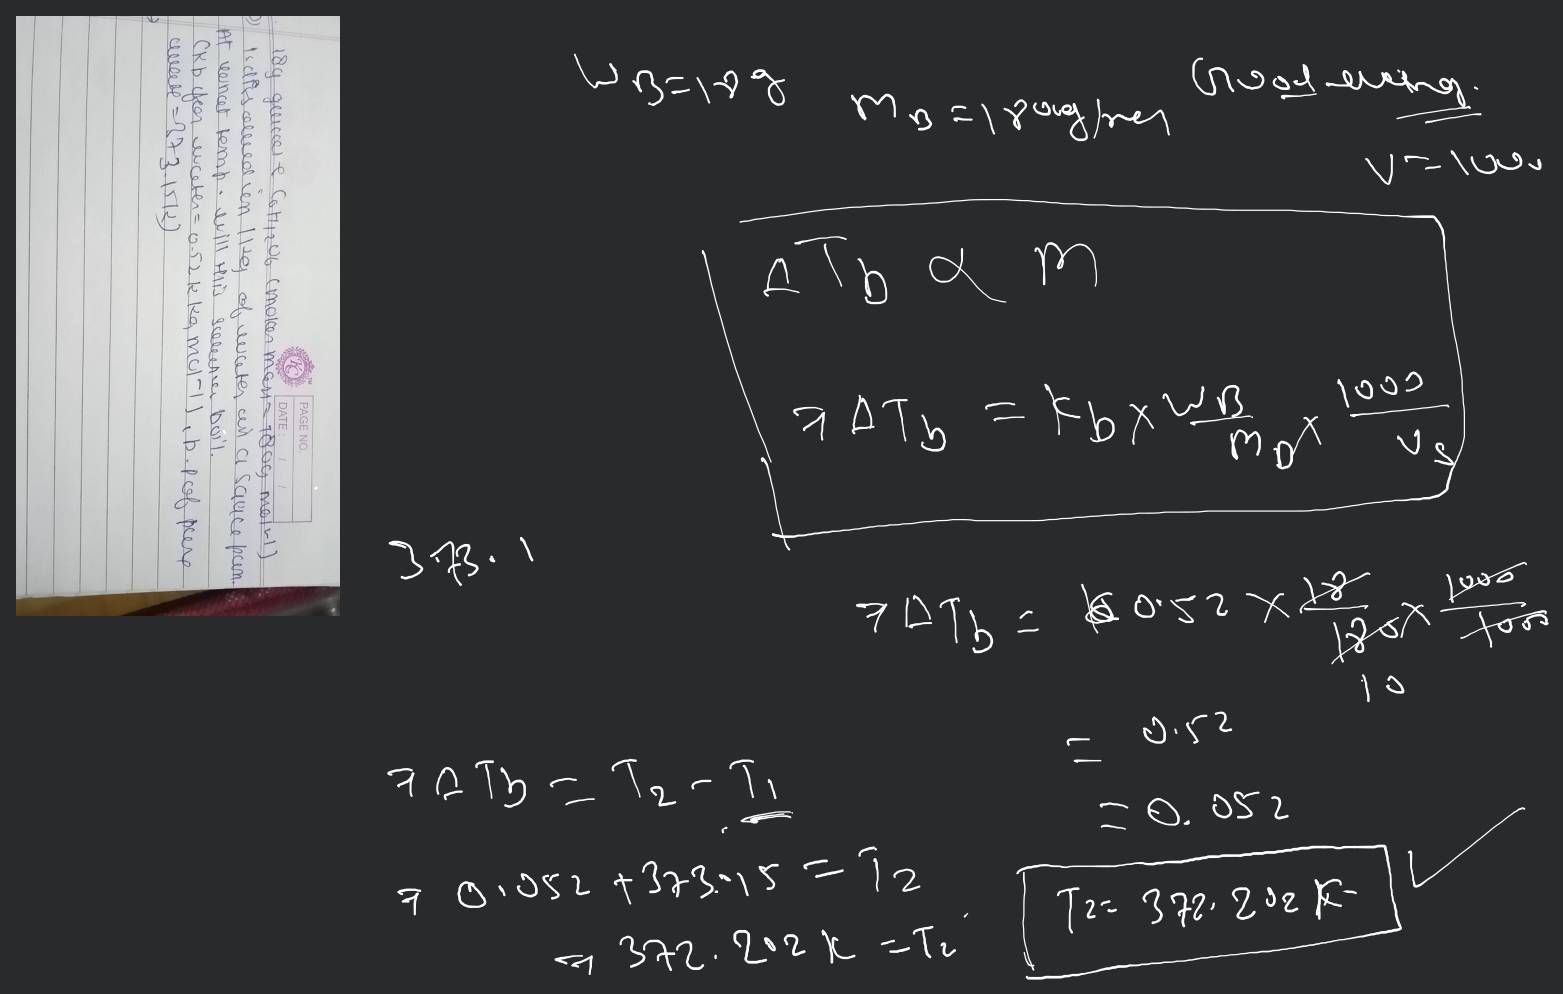 PAGE NO.
DATE: / /
18g glucose C6H12O6 (molar mass = 180g mol-1)
is dissolved in 1 kg of water in a sauce pan.
At temp. will this boil.
(Kb for water = 0.52 K kg mol-1), b.p of pure
= 373.15K)
WB=18g
MB=180g/mol
V=1000
ΔTb ∝ m
⇒ ΔTb = Kb × WB/MB × 1000/Vs
373.1
⇒ ΔTb = 0.52 × 18/180 × 1000/1000
10
= 0.52
= 0.052
⇒ ΔTb = T2 - T1
⇒ 0.052 + 373.15 = T2
⇒ 372.202 K = T2
T2= 372.202 K